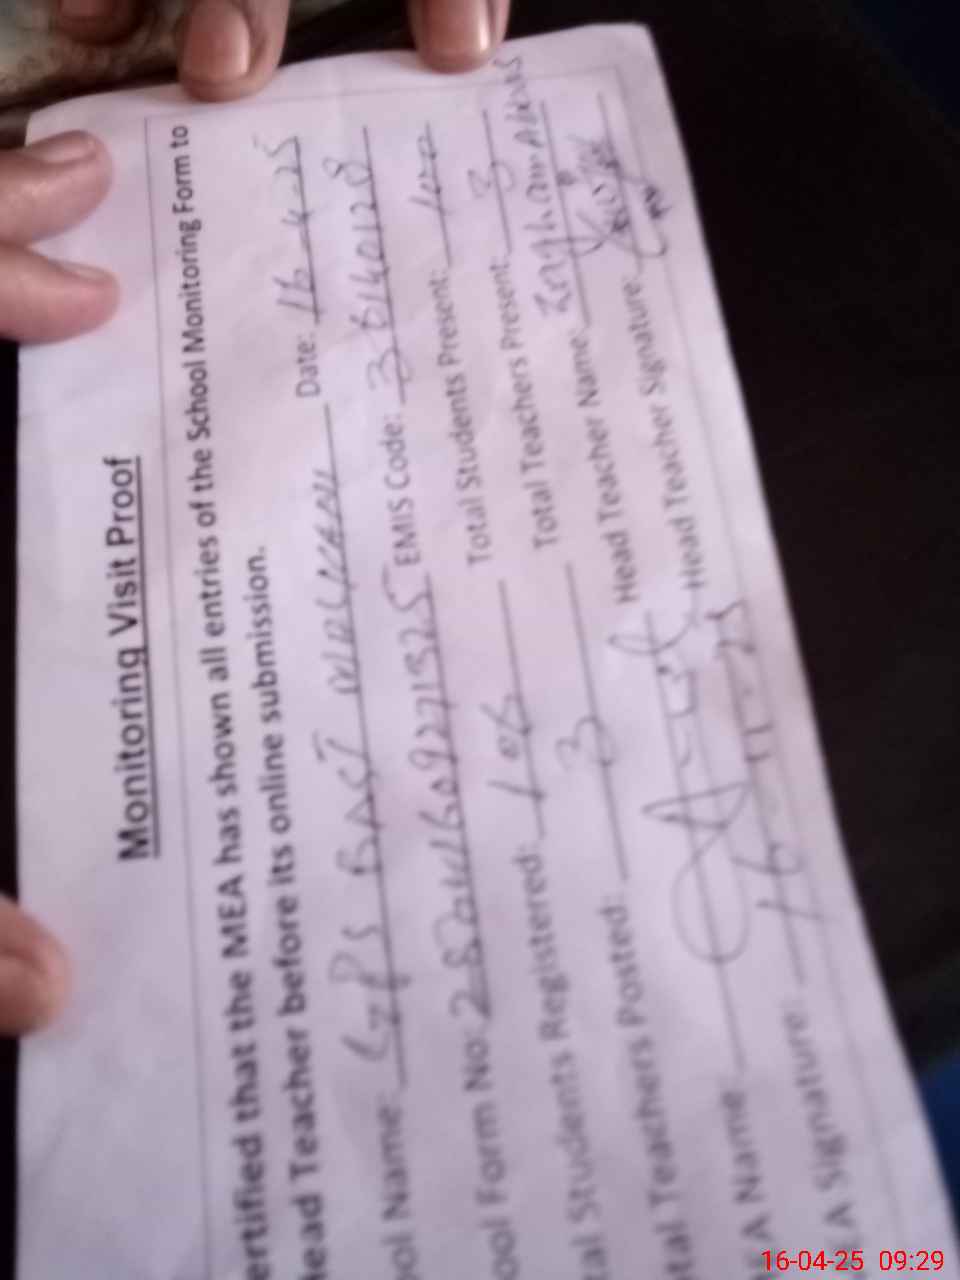 Monitoring Visit Proof
ertified that the MEA has shown all entries of the School Monitoring Form to
Head Teacher before its online submission.
ool Name: GPS BAST Date: 16-4-25
ool Form No: EMIS Code: 36140128
tal Students Registered: 106 Total Students Present: 100
tal Teachers Posted: 3 Total Teachers Present: 3
EA Name Head Teacher Name: Zargham Abbas
EA Signature: Head Teacher Signature:
16-04-25 09:29